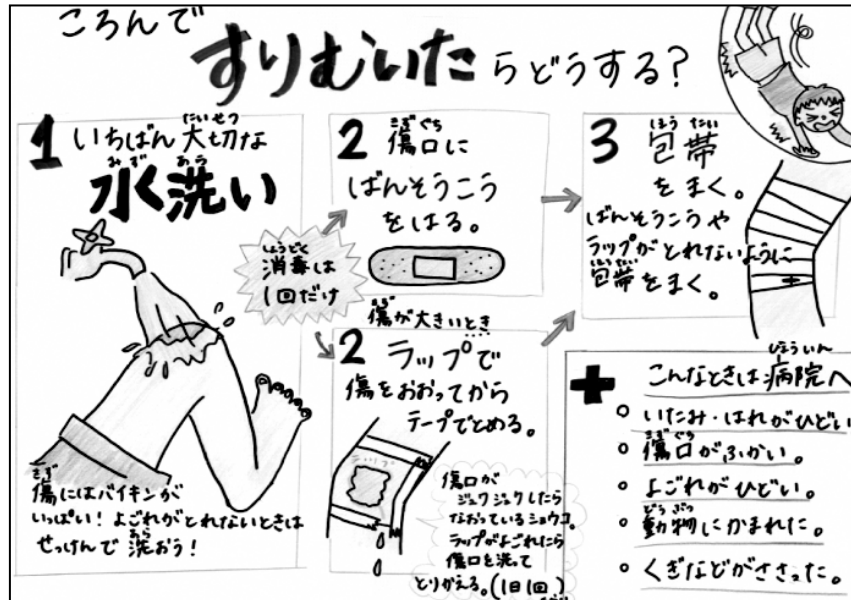 ころんで
すりむいたらどうする?
1 いちばん大切な
たいせつ
水洗い
みず あら
傷にはバイキンが
きず
いっぱい! よごれがとれないときは
せっけんで洗おう!
あら
消毒は
しょうどく
1回だけ
2 傷口に
きずぐち
ばんそうこう
をはる。
傷が大きいとき
きず
2 ラップで
傷をおおってから
テープでとめる。
ラップ
傷口が
ジュクジュクしたら
なおっているショウコ。
ラップがよごれたら
傷口を洗って
とりかえる。(1日1回)
3 包帯
ほうたい
をまく。
ばんそうこうや
ラップがとれないように
包帯をまく。
ほうたい
こんなときは病院へ
びょういん
いたみ・はれがひどい
傷口がふかい。
きずぐち
よごれがひどい。
動物にかまれた。
どうぶつ
くぎなどがささった。